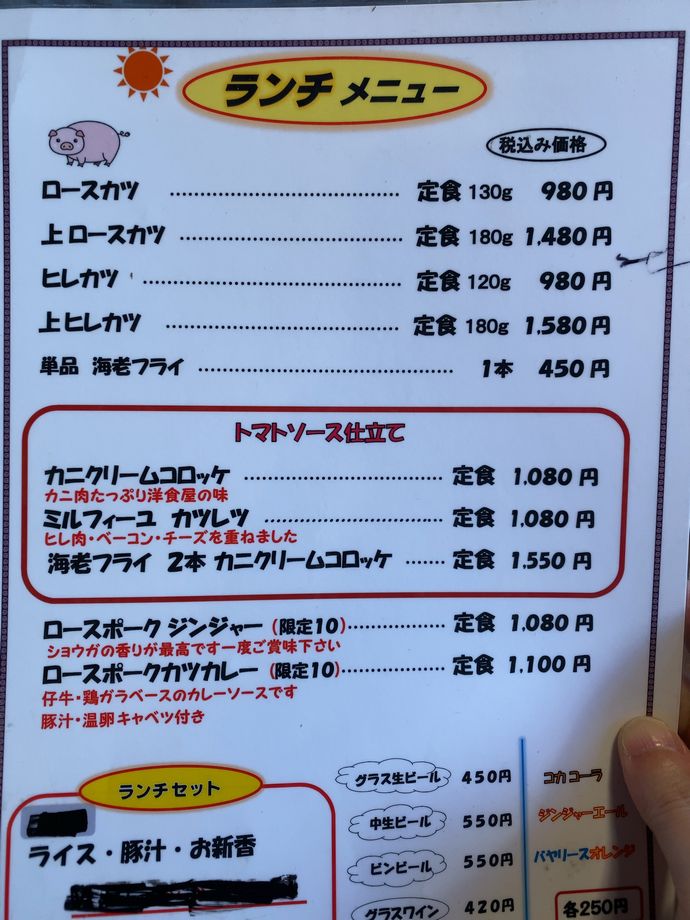 ランチメニュー
税込み価格
ロースカツ ……………………… 定食 130g 980円
上ロースカツ ……………………… 定食 180g 1,480円
ヒレカツ ……………………… 定食 120g 980円
上ヒレカツ ……………………… 定食 180g 1,580円
単品 海老フライ ……………………… 1本 450円
トマトソース仕立て
カニクリームコロッケ ……………………… 定食 1,080円
カニ肉たっぷり洋食屋の味
ミルフィーユ カツレツ ……………………… 定食 1,080円
ヒレ肉・ベーコン・チーズを重ねました
海老フライ 2本 カニクリームコロッケ ……… 定食 1,550円
ロースポーク ジンジャー (限定10)……………… 定食 1,080円
ショウガの香りが最高です一度ご賞味下さい
ロースポークカツカレー (限定10)……………… 定食 1,100円
仔牛・鶏ガラベースのカレーソースです
豚汁・温卵キャベツ付き
ランチセット
ライス・豚汁・お新香
グラス生ビール 450円
中生ビール 550円
ビンビール 550円
グラスワイン 420円
コカコーラ
ジンジャーエール
バヤリースオレンジ
各250円